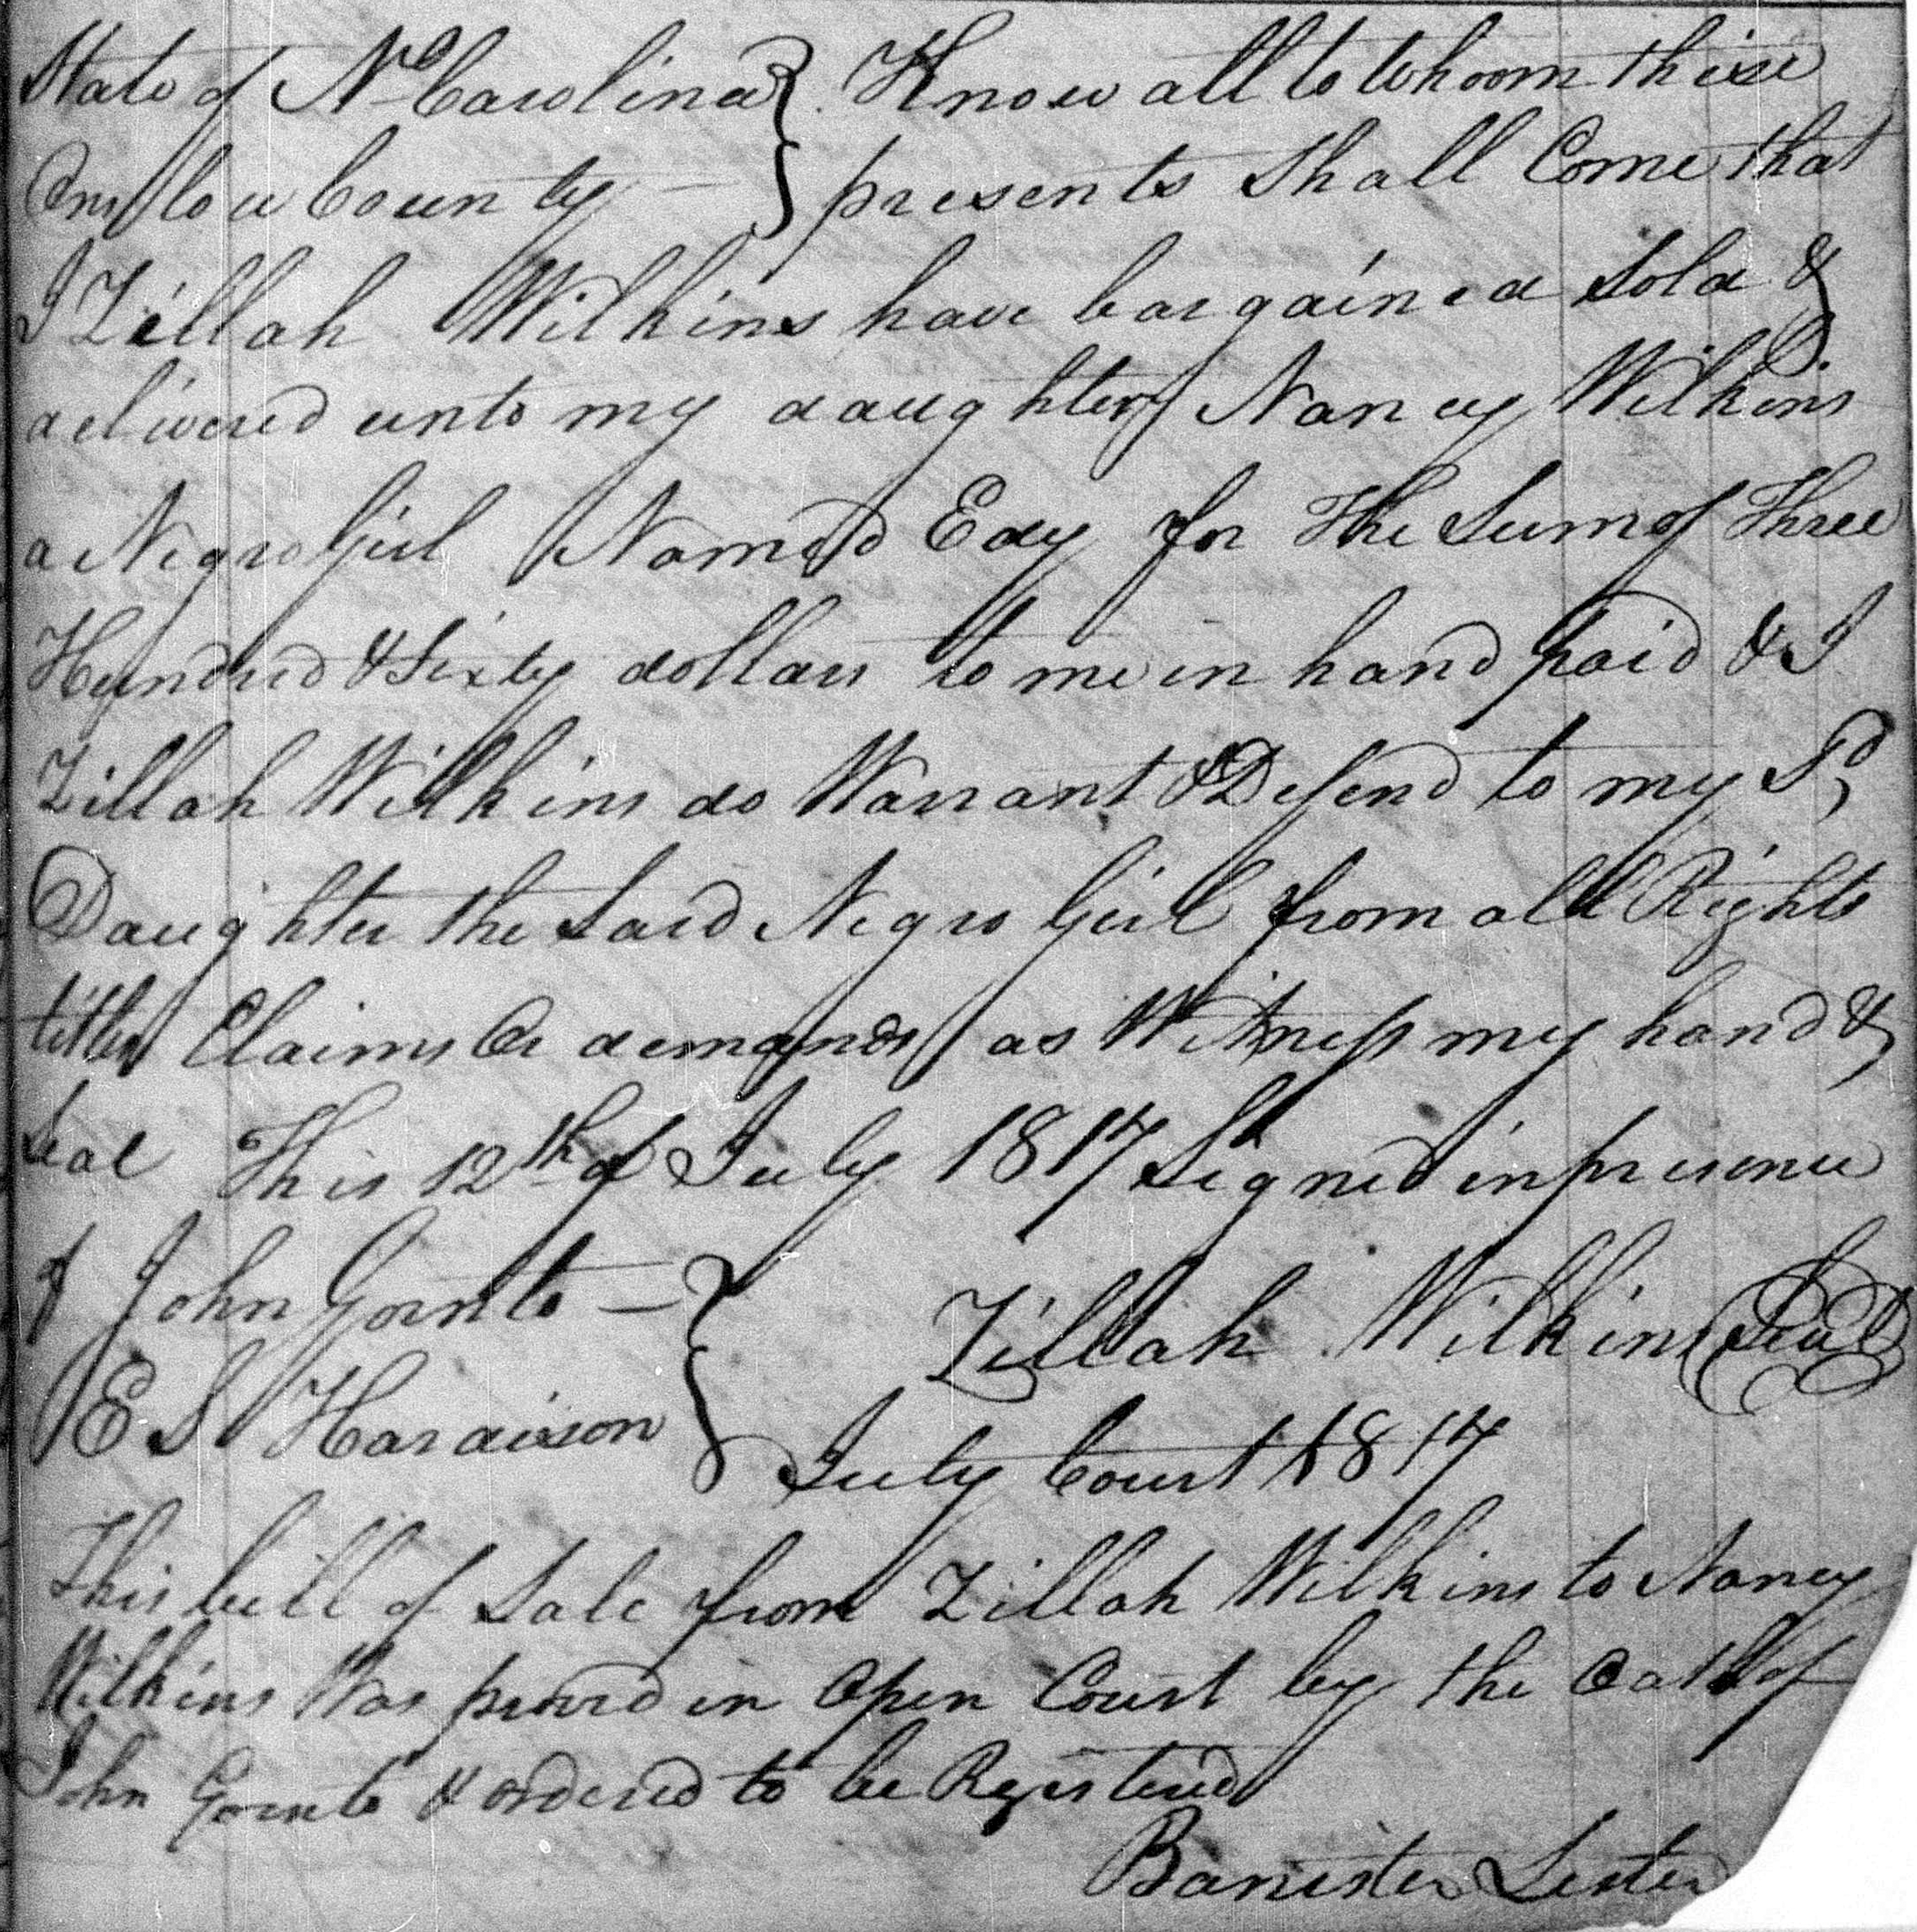 State of No Carolina } Know all to Whoom these
Onslow County — } presents Shall Come that
I Zillah Wilkins have bargained Sold &
delivered unto my daughter Nancy Wilkins
a Negro Girl Named Edy for The Sum of Three
Hundred & Sixty dollars to me in hand paid & I
Zillah Wilkins do Warrant & Defend to my Sd
Daughter the Said Negro Girl from all Rights
titles Claims Or demands as Witness my hand &
Seal This 12th of July 1817 Signed in presence
of John Gornto — } Zillah Wilkins (Seal)
E S Hardison
July Court 1817
This bill of Sale from Zillah Wilkins to Nancy
Wilkins Was proved in Open Court by the Oath of
John Gornto & ordered to be Registered
Banister Lester